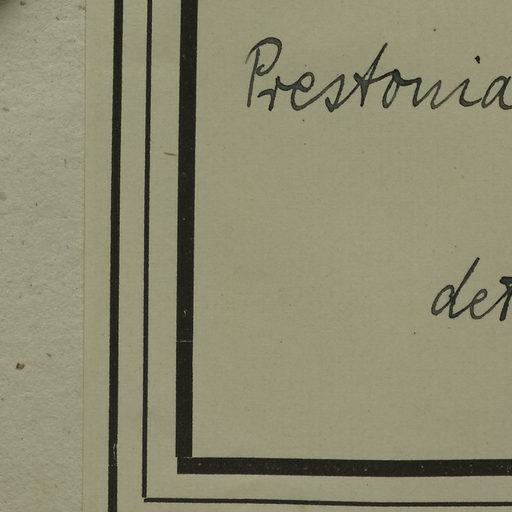 Prestonia
det